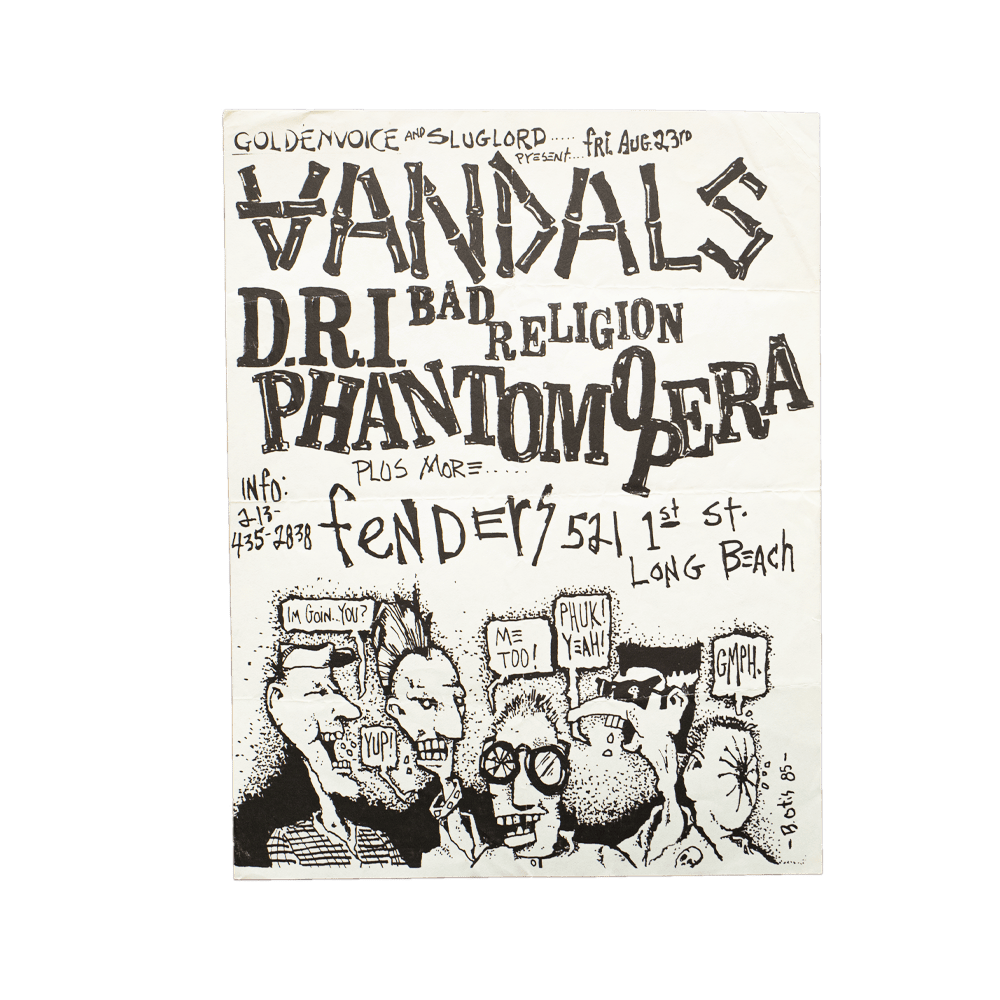 GOLDENVOICE AND SLUGLORD.....
PRESENT.... fRi. AUG. 23RD
VANDALS
D.R.I. BAD RELIGION
PHANTOM OPERA
PLUS MORE......
INfO:
213-
435-2838
fENDERS 521 1st St.
LONG BEAch
I'M GOIN..YOU?
YUP!
ME TOO!
PHUK! YEAH!
GMPH.
-B.Otis 85-